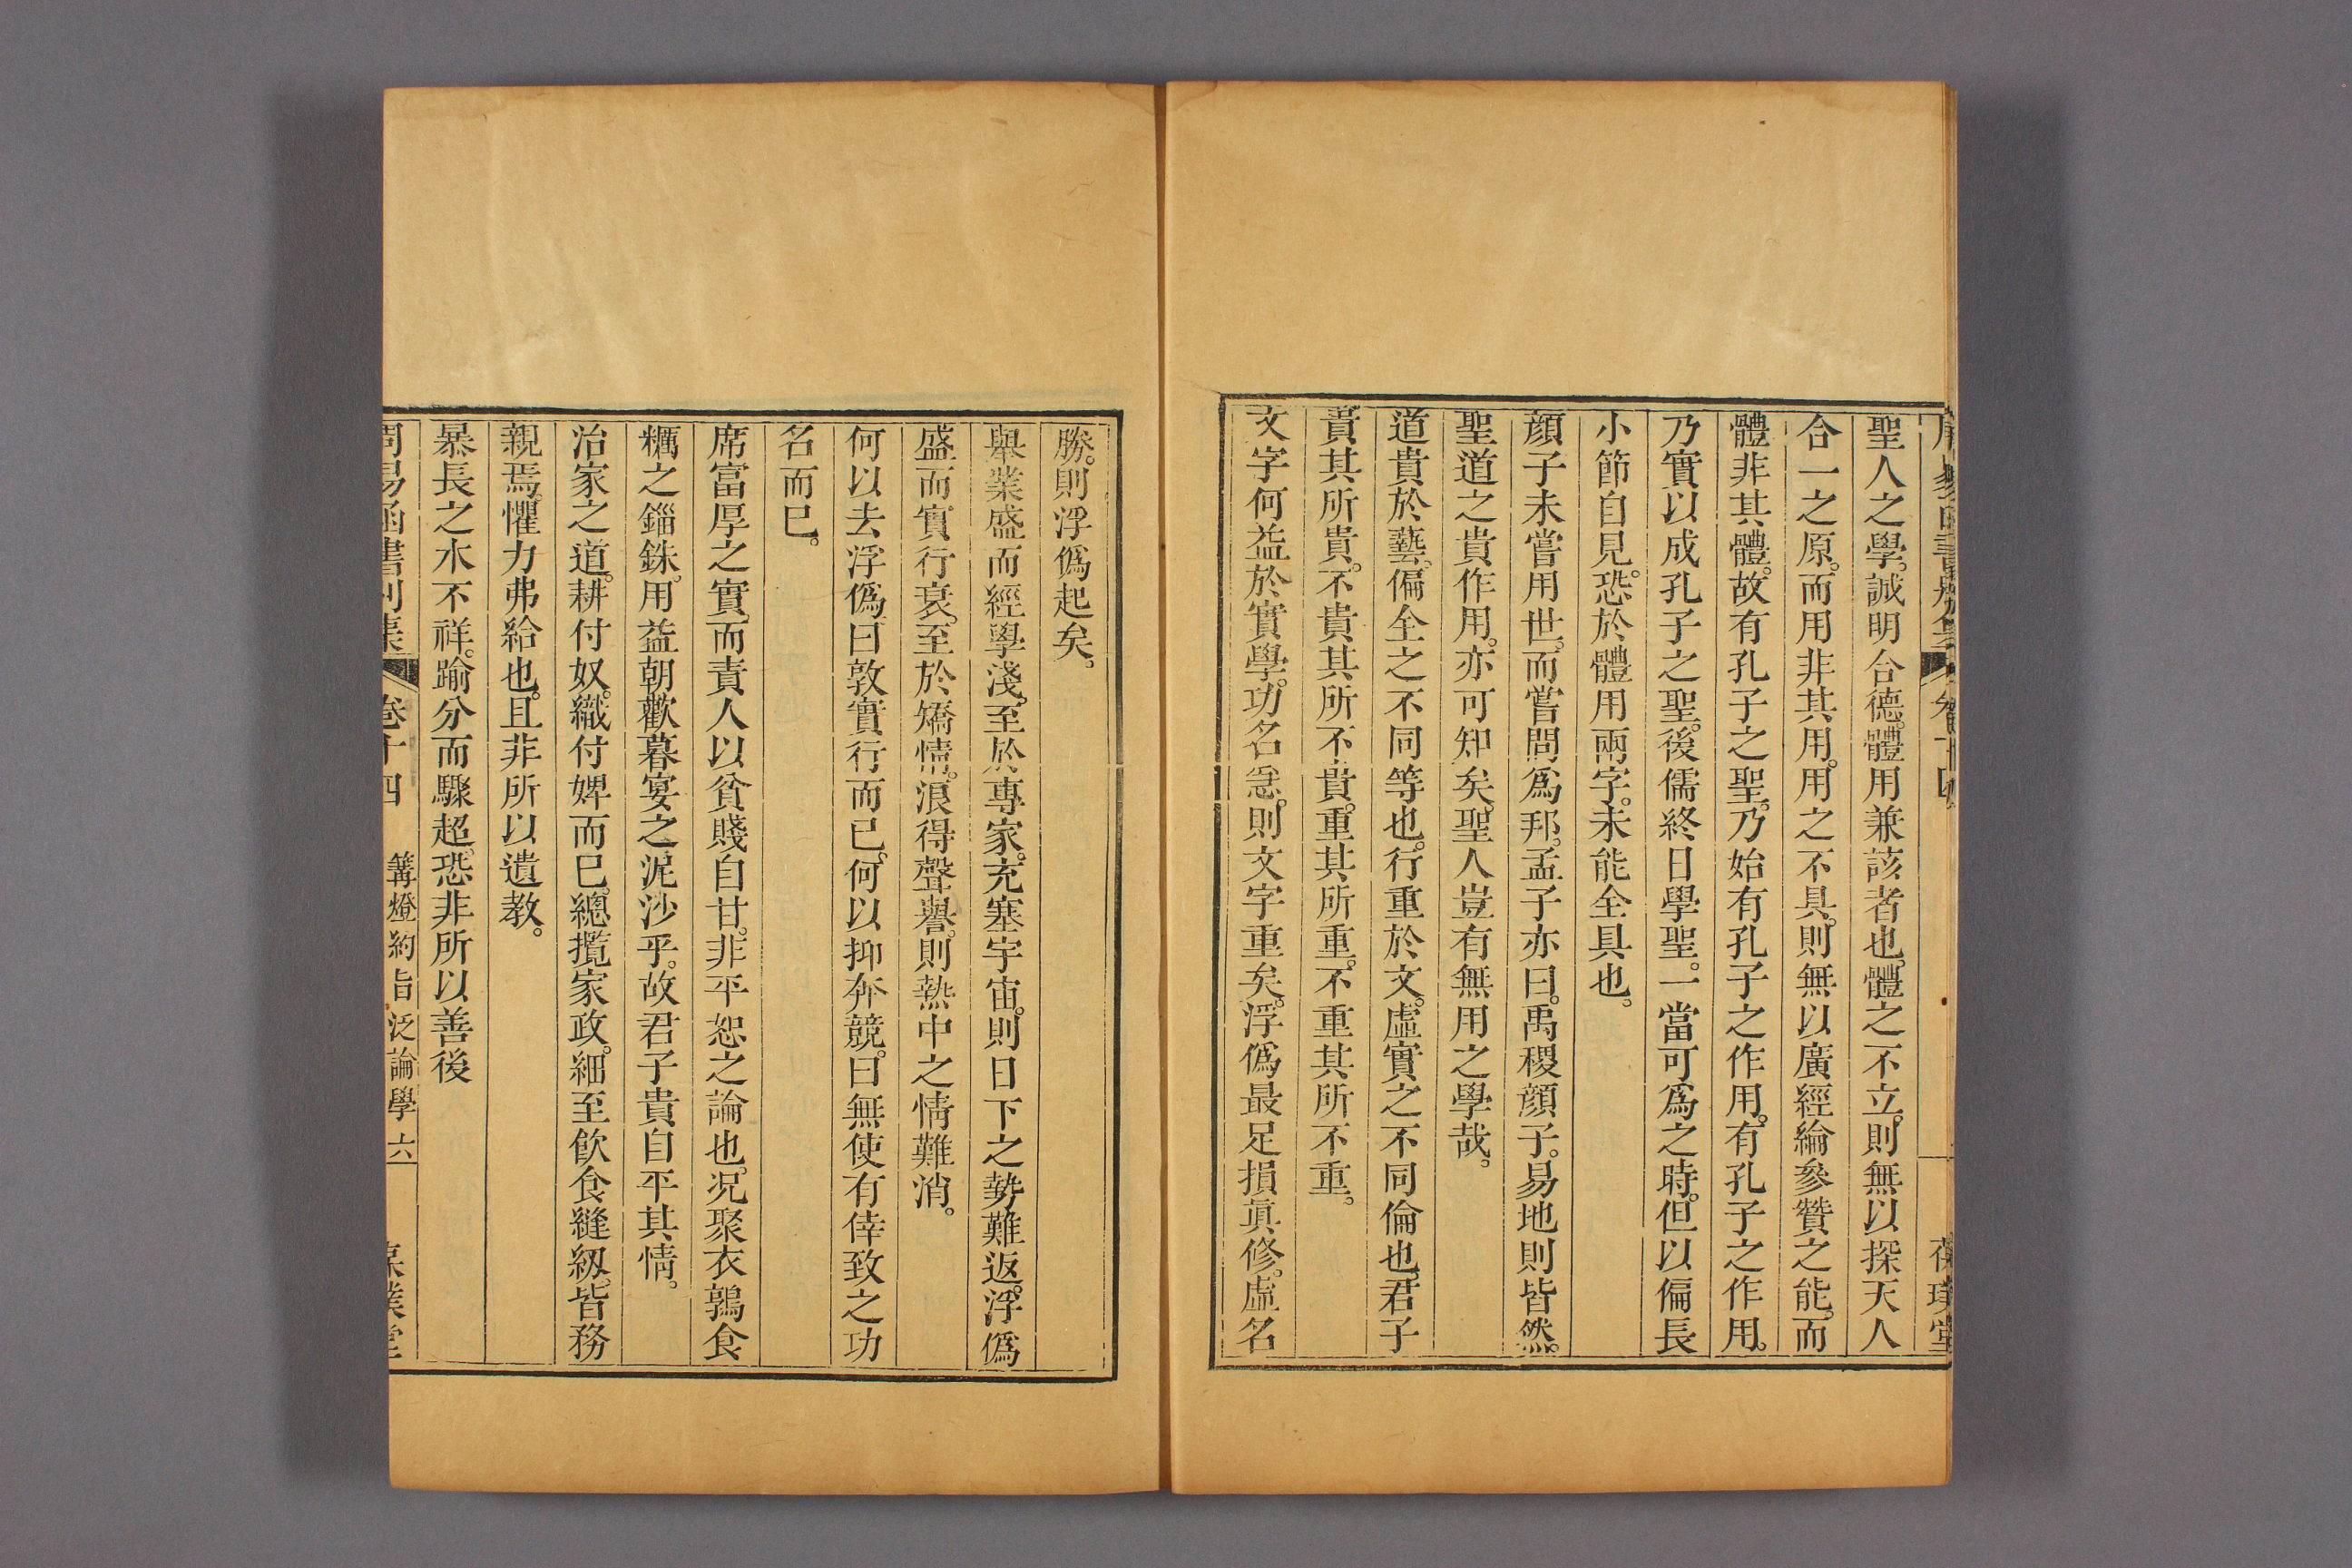 周易函書別集 卷十四 葆璞堂
聖人之學。誠明合德。體用兼該者也。體之不立。則無以探天人
合一之原。而用非其用。用之不具。則無以廣經綸參贊之能。而
體非其體。故有孔子之聖。乃始有孔子之作用。有孔子之作用。
乃實以成孔子之聖。後儒終日學聖。一當可爲之時。但以偏長
小節自見。恐於體用兩字。未能全具也。
顏子未嘗用世。而嘗問爲邦。孟子亦曰。禹稷顏子。易地則皆然。
聖道之貴作用。亦可知矣。聖人豈有無用之學哉。
道貴於藝。偏全之不同等也。行重於文。虛實之不同倫也。君子
貴其所貴。不貴其所不貴。重其所重。不重其所不重。
文字何益於實學。功名急。則文字重矣。浮僞最足損眞修。虛名
勝。則浮僞起矣。
舉業盛而經學淺。至於專家。充塞宇宙。則日下之勢難返。浮僞
盛而實行衰。至於矯情。浪得聲譽。則熱中之情難消。
何以去浮僞。曰敦實行而已。何以抑奔競。曰無使有倖致之功
名而已。
席富厚之實。而責人以貧賤自甘。非平恕之論也。况聚衣鶉食
糲之錙銖。用益朝歡暮宴之泥沙乎。故君子貴自平其情。
治家之道。耕付奴。織付婢而已。總攬家政。細至飲食縫紉。皆務
親焉。懼力弗給也。且非所以遺教。
暴長之水不祥。踰分而驟超。恐非所以善後
周易函書別集 卷十四 篝燈約旨 泛論學 六 葆璞堂